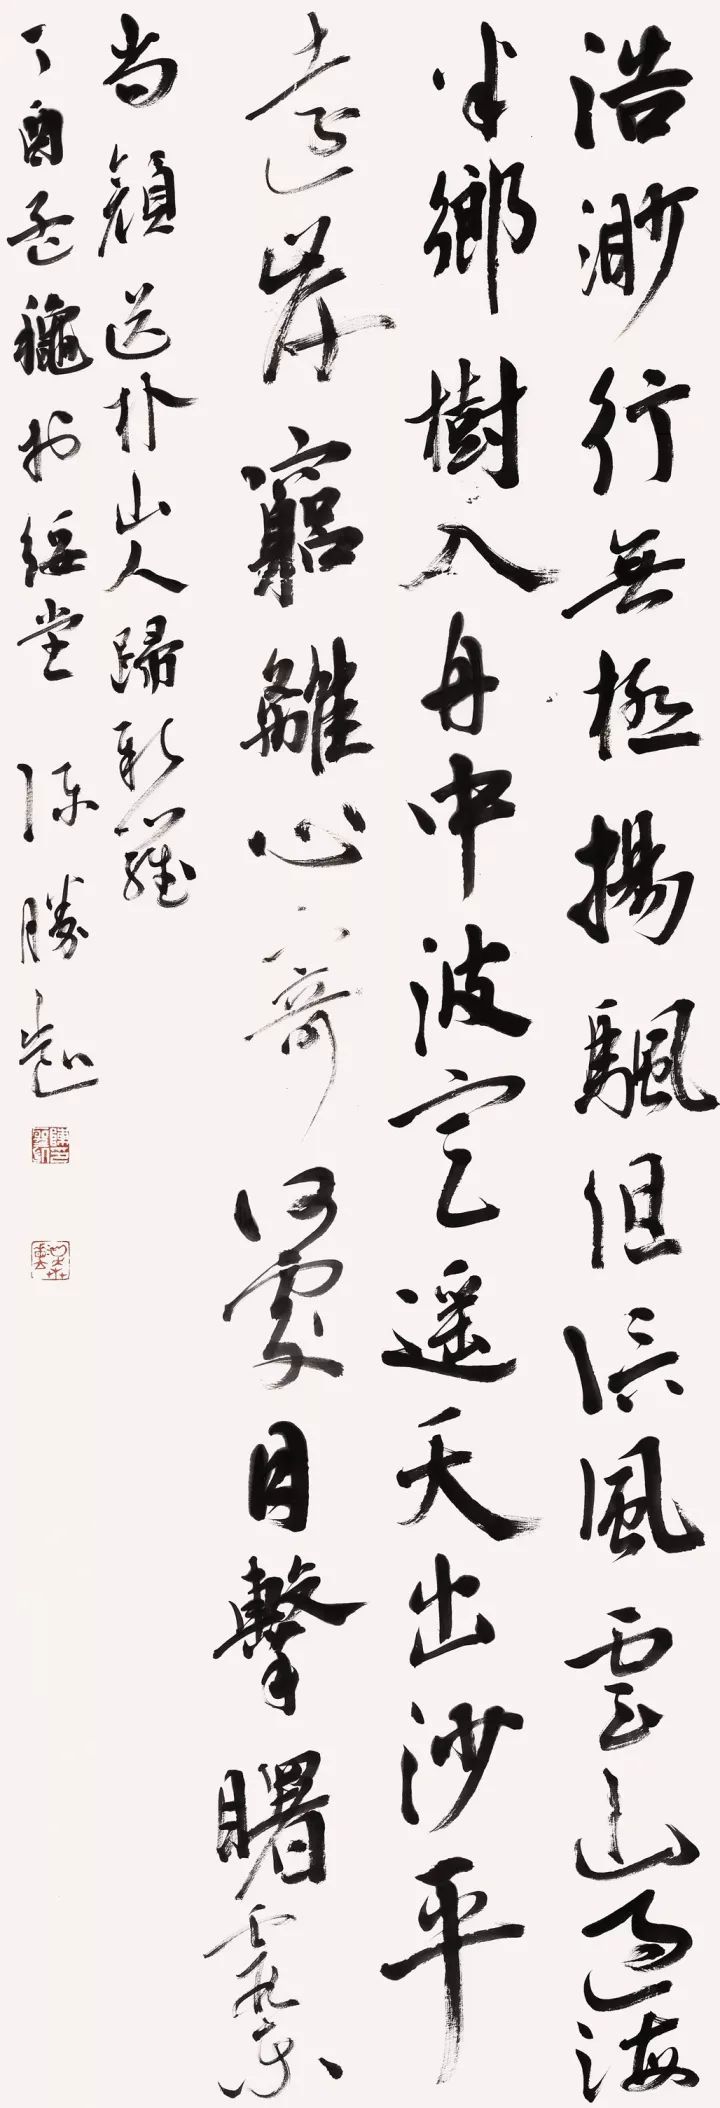 浩渺行無極揚颿但信風雲山過海
半鄉樹入舟中波定遥天出沙平
遠岸窮離心寄何處目擊曙霞東
尚顏送朴山人歸新羅
丁酉孟龝於綏堂 陳勝凱